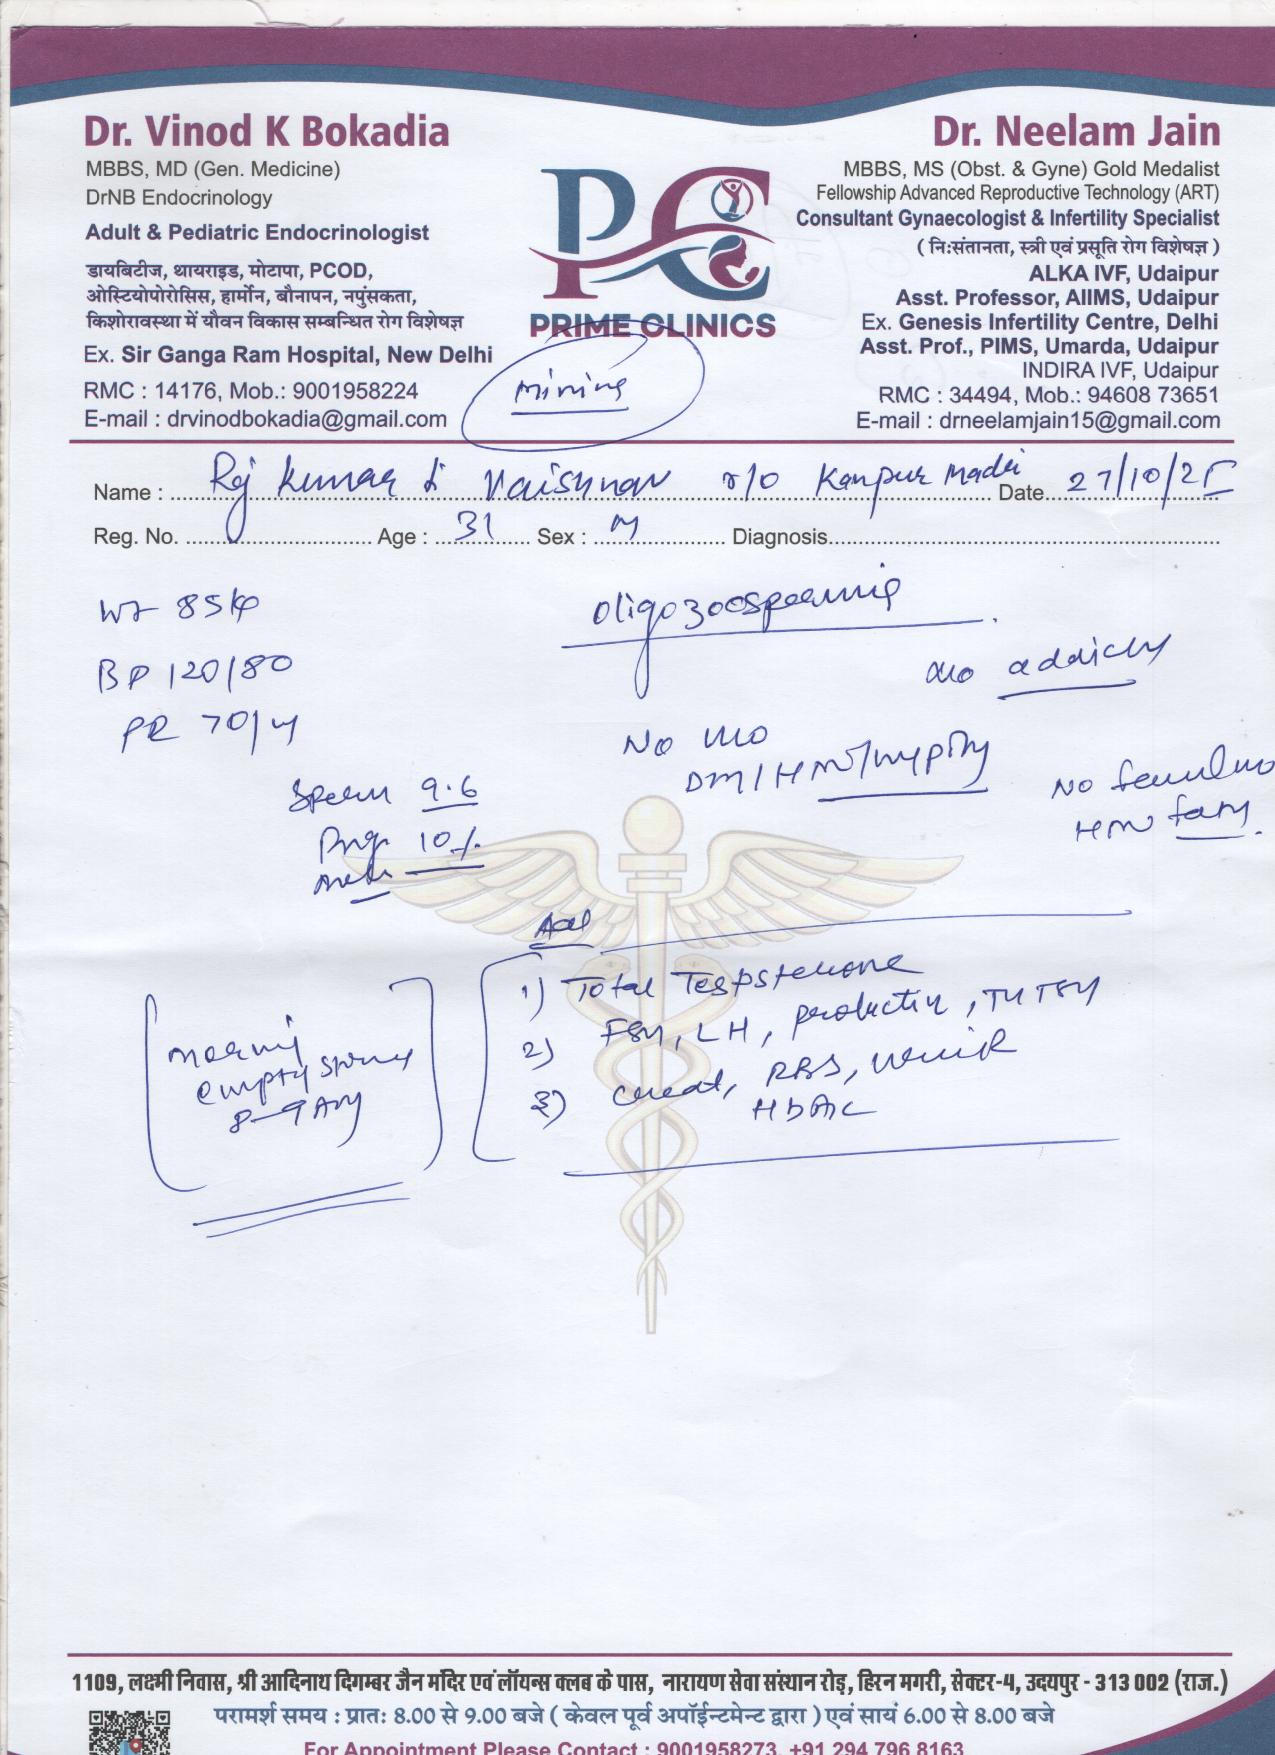 Dr. Vinod K Bokadia
MBBS, MD (Gen. Medicine)
DrNB Endocrinology
Adult & Pediatric Endocrinologist
डायबिटीज, थायराइड, मोटापा, PCOD,
ओस्टियोपोरोसिस, हार्मोन, बौनापन, नपुंसकता,
किशोरावस्था में यौवन विकास सम्बन्धित रोग विशेषज्ञ
Ex. Sir Ganga Ram Hospital, New Delhi
RMC : 14176, Mob.: 9001958224
E-mail : drvinodbokadia@gmail.com
PC
PRIME CLINICS
Mining
Dr. Neelam Jain
MBBS, MS (Obst. & Gyne) Gold Medalist
Fellowship Advanced Reproductive Technology (ART)
Consultant Gynaecologist & Infertility Specialist
( नि:संतानता, स्त्री एवं प्रसूति रोग विशेषज्ञ )
ALKA IVF, Udaipur
Asst. Professor, AIIMS, Udaipur
Ex. Genesis Infertility Centre, Delhi
Asst. Prof., PIMS, Umarda, Udaipur
INDIRA IVF, Udaipur
RMC : 34494, Mob.: 94608 73651
E-mail : drneelamjain15@gmail.com
Name : Raj Kumar Vaishnav r/o Kanpur Madri Date 27/10/25
Reg. No. Age : 31 Sex : M Diagnosis
Wt 85kg
BP 120/80
PR 70/m
Oligozoospermia
No
No
DM/HTN
No
Sperm 9.6
Prog. 10%
Adv
1) Total Testosterone
2) FSH, LH, prolactin, T4 TSH
3) creat, RBS,
HbA1c
morning
empty stomach
8-9 AM
1109, लक्ष्मी निवास, श्री आदिनाथ दिगम्बर जैन मंदिर एवं लॉयन्स क्लब के पास, नारायण सेवा संस्थान रोड़, हिरन मगरी, सेक्टर-4, उदयपुर - 313 002 (राज.)
परामर्श समय : प्रातः 8.00 से 9.00 बजे ( केवल पूर्व अपॉईन्टमेन्ट द्वारा ) एवं सायं 6.00 से 8.00 बजे
For Appointment Please Contact : 9001958273, +91 294 796 8163